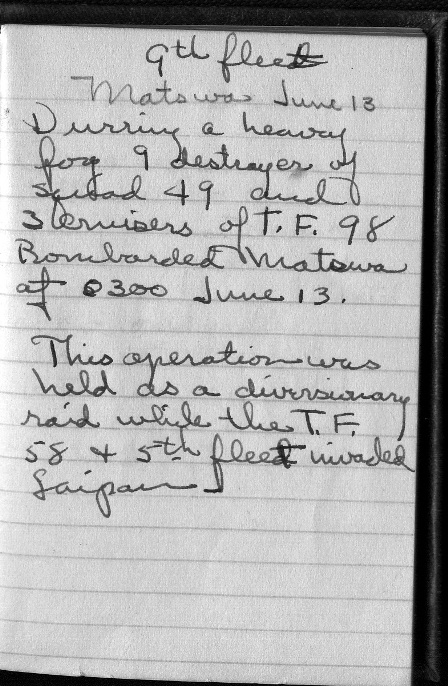 9th fleet
Matswa June 13
Durring a heavy
fog 9 destroyer of
squad 49 and
3 Cruisers of T.F. 98
Bombarded Matswa
at 0300 June 13.
This operation was
held as a diversionary
raid while the T.F.
58 + 5th fleet invaded
Saipan